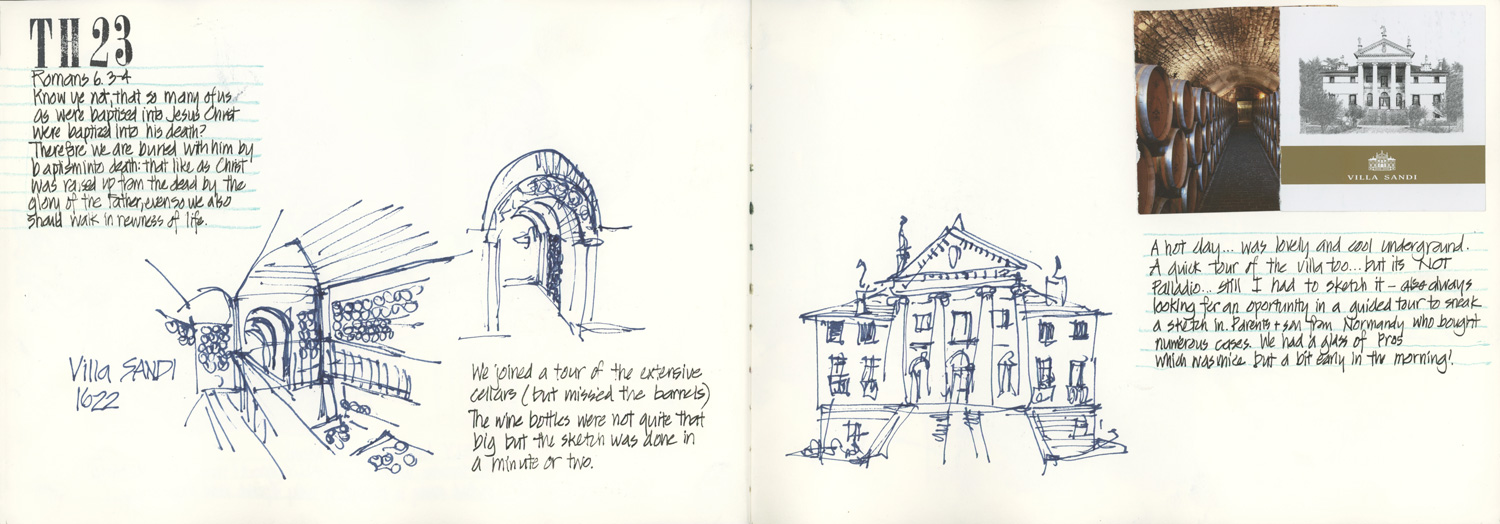 TH 23
Romans 6. 3-4
Know ye not, that so many of us
as were baptised into Jesus Christ
were baptized into his death?
Therefore we are buried with him by
baptism into death: that like as Christ
was raised up from the dead by the
glory of the Father, even so we also
should walk in newness of life.
Villa SANDI
1622
We joined a tour of the extensive
cellars (but missed the barrels)
The wine bottles were not quite that
big but the sketch was done in
a minute or two.
VILLA SANDI
A hot day... was lovely and cool underground.
A quick tour of the villa too... but its NOT
Palladio... still I had to sketch it - also always
looking for an oportunity in a guided tour to sneak
a sketch in. Parents + son from Normandy who bought
numerous cases. We had a glass of Pros
which was nice but a bit early in the morning!